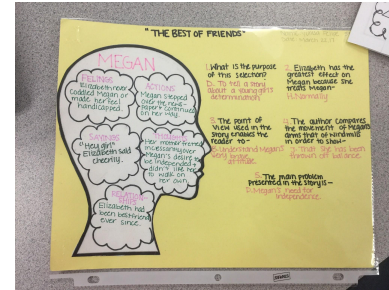 "THE BEST OF FRIENDS"
MEGAN
FEELINGS
Elizabeth never
coddled Megan or
made her feel
handicapped.
ACTIONS
Megan stepped
over the news-
paper & continued
on her way.
SAYINGS
"Hey girl"
Elizabeth said
cheerily.
Her mother fretted
incessantly over
Megan's desire to
be independent &
didn't like her
to walk on
her own.
RELATION-
SHIPS
Elizabeth had
been best friend
ever since.
1. What is the purpose
of this selection?
D. To tell a story
about a young girl's
determination
2. Elizabeth has the
greatest effect on
Megan because she
treats Megan-
H. Normally
3. The point of
view used in the
story enables the
reader to-
B. Understand Megan's
attitude.
4. The author compares
the movement of Megan's
arms to that of windmills
in order to show-
J. That she has been
thrown off balance.
5. The main problem
presented in the story is-
D. Megan's need for
independence.